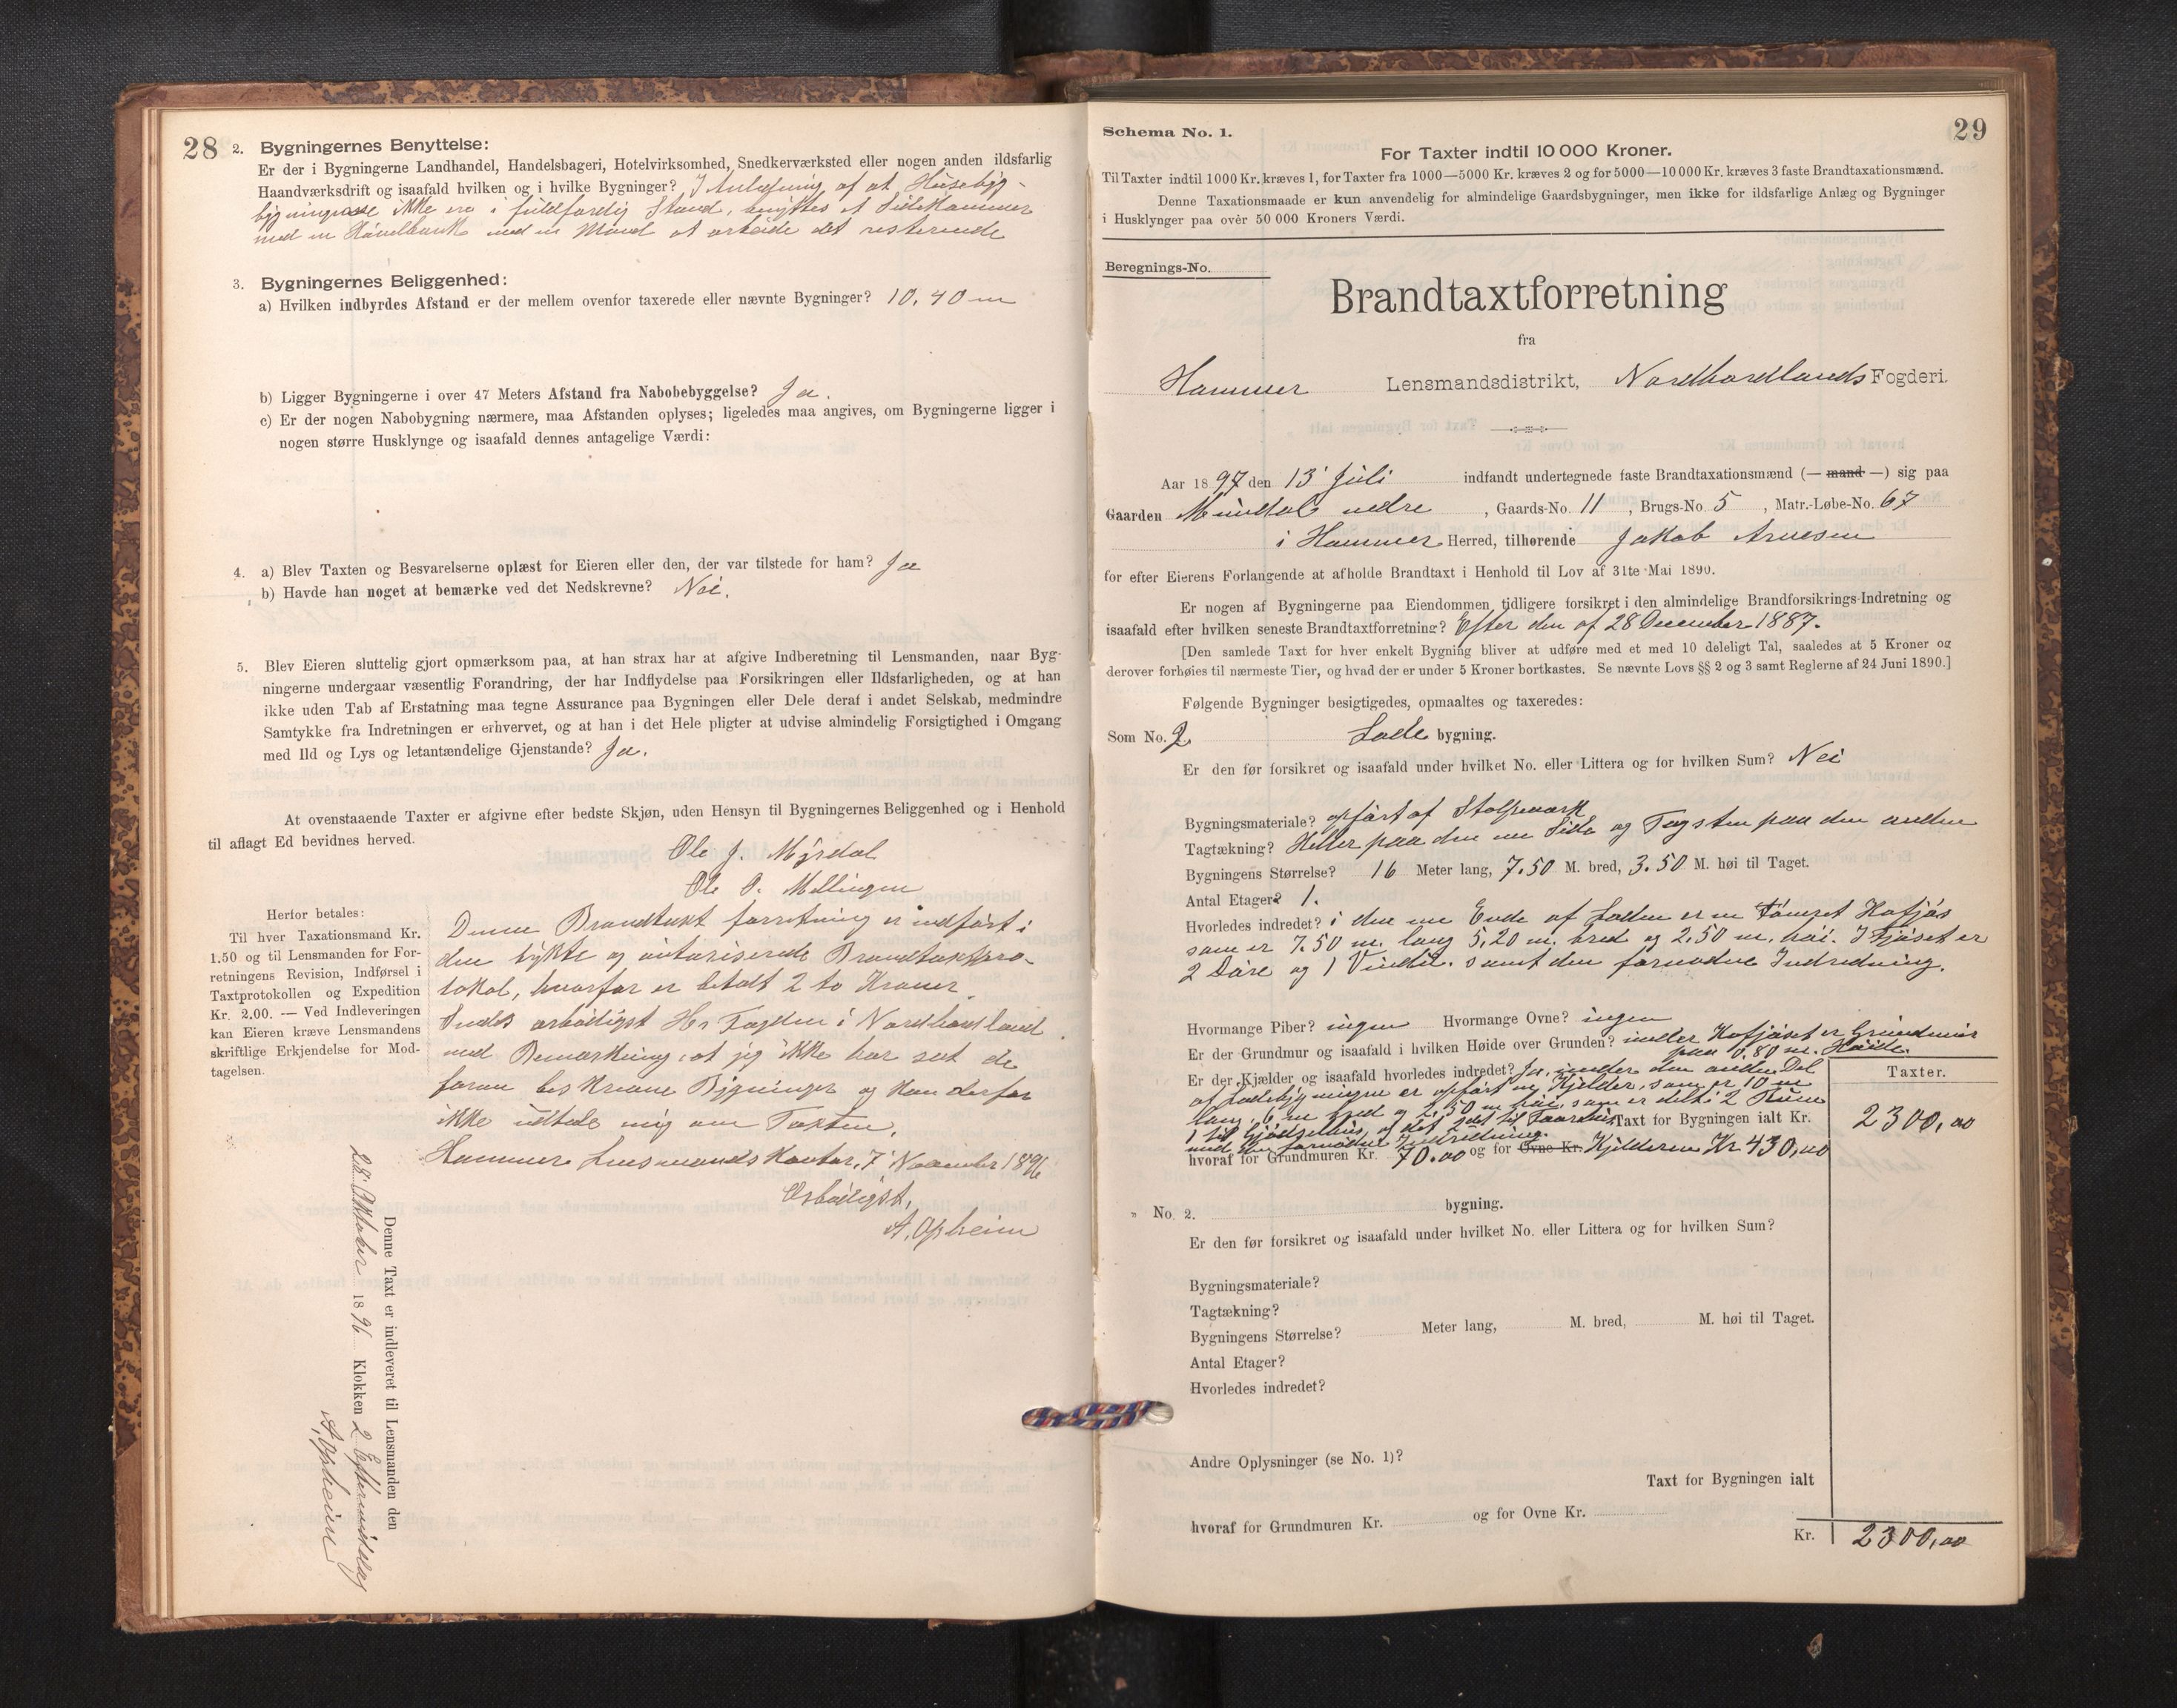 28
2. Bygningernes Benyttelse:
Er der i Bygningerne Landhandel, Handelsbageri, Hotelvirksomhed, Snedkerværksted eller nogen anden ildsfarlig
Haandværksdrift og isaafald hvilken og i hvilke Bygninger? I Anledning af at Husebyg-
bygningerne ikke ere i fuldfærdig Stand, benyttes et Sidekammer
med en Høvelbænk med en Mand at arbeide det resterende
3. Bygningernes Beliggenhed:
a) Hvilken indbyrdes Afstand er der mellem ovenfor taxerede eller nævnte Bygninger? 10,40 m
b) Ligger Bygningerne i over 47 Meters Afstand fra Nabobebyggelse? Ja.
c) Er der nogen Nabobygning nærmere, maa Afstanden oplyses; ligeledes maa angives, om Bygningerne ligger i
nogen større Husklynge og isaafald dennes antagelige Værdi:
4. a) Blev Taxten og Besvarelserne oplæst for Eieren eller den, der var tilstede for ham? Ja
b) Havde han noget at bemærke ved det Nedskrevne? Nei.
5. Blev Eieren sluttelig gjort opmærksom paa, at han strax har at afgive Indberetning til Lensmanden, naar Byg-
ningerne undergaar væsentlig Forandring, der har Indflydelse paa Forsikringen eller Ildsfarligheden, og at han
ikke uden Tab af Erstatning maa tegne Assurance paa Bygningen eller Dele deraf i andet Selskab, medmindre
Samtykke fra Indretningen er erhvervet, og at han i det Hele pligter at udvise almindelig Forsigtighed i Omgang
med Ild og Lys og letantændelige Gjenstande? Ja.
At ovenstaaende Taxter er afgivne efter bedste Skjøn, uden Hensyn til Bygningernes Beliggenhed og i Henhold
til aflagt Ed bevidnes herved.
Ole J. Myrdal
Ole O. Mellingen
Herfor betales:
Til hver Taxationsmand Kr.
1.50 og til Lensmanden for For-
retningens Revision, Indførsel i
Taxtprotokollen og Expedition
Kr. 2.00. — Ved Indleveringen
kan Eieren kræve Lensmandens
skriftlige Erkjendelse for Mod-
tagelsen.
Denne Brandtaxt forretning er indført i
den trykte og autoriserede Brandtaxtpro-
tokol, hvorfor er betalt 2 to Kroner
Sendes ærbødigst Hr Fogden i Nordhordland
med Bemærkning, at jeg ikke har seet de
foran beskrevne Bygninger og kan derfor
ikke udtale mig om Taxten.
Hammer Lensmandskontor, 7 November 1896
Ærbødigst,
A. Opheim
Denne Taxt er indleveret til Lensmanden den
28 Oktober 1896 Klokken 2 Eftermiddag
A. Opheim
29
Schema No. 1.
For Taxter indtil 10 000 Kroner.
Til Taxter indtil 1000 Kr. kræves 1, for Taxter fra 1000—5000 Kr. kræves 2 og for 5000—10 000 Kr. kræves 3 faste Brandtaxationsmænd.
Denne Taxationsmaade er kun anvendelig for almindelige Gaardsbygninger, men ikke for ildsfarlige Anlæg og Bygninger
i Husklynger paa over 50 000 Kroners Værdi.
Beregnings-No.
Brandtaxtforretning
fra
Hammer Lensmandsdistrikt, Nordhordlands Fogderi.
Aar 1897 den 13 Juli indfandt undertegnede faste Brandtaxationsmænd (— mand —) sig paa
Gaarden Mundal nedre, Gaards-No. 11, Brugs-No. 5, Matr.-Løbe-No. 67
i Hammer Herred, tilhørende Jakob Arnesen
for efter Eierens Forlangende at afholde Brandtaxt i Henhold til Lov af 31te Mai 1890.
Er nogen af Bygningerne paa Eiendommen tidligere forsikret i den almindelige Brandforsikrings-Indretning og
isaafald efter hvilken seneste Brandtaxtforretning? Efter den af 28 December 1887.
[Den samlede Taxt for hver enkelt Bygning bliver at udføre med et med 10 deleligt Tal, saaledes at 5 Kroner og
derover forhøies til nærmeste Tier, og hvad der er under 5 Kroner bortkastes. Se nævnte Lovs §§ 2 og 3 samt Reglerne af 24 Juni 1890.]
Følgende Bygninger besigtigedes, opmaaltes og taxeredes:
Som No. 2. Lade bygning.
Er den før forsikret og isaafald under hvilket No. eller Littera og for hvilken Sum? Nei
Bygningsmateriale? opført af Stolpeværk
Tagtækning? Heller paa den ene Side og Tagsten paa den anden
Bygningens Størrelse? 16 Meter lang, 7.50 M. bred, 3.50 M. høi til Taget.
Antal Etager? 1.
Hvorledes indredet? i den ene Ende af Laden er en tømret Kofjøs
som er 7.50 m. lang 5,20 m. bred og 2,50 m. høi. I Fjøset er
2 Døre og 1 Vindu. samt den fornødne Indredning.
Hvormange Piber? ingen Hvormange Ovne? ingen
Er der Grundmur og isaafald i hvilken Høide over Grunden? under Kofjøset er Grundmur
paa 0.80 m. Høide.
Er der Kjælder og isaafald hvorledes indredet? Ja, under den anden Del
af Ladebygningen er opført en Kjelder, som er 10 m
lang, 6 m bred og 2,50 m høi, som er delt i 2 Rum
1 til Gjødselhus, og det 2det til Faarehus
med den fornødne Indredning.
Taxter.
Taxt for Bygningen ialt Kr. 2300,00
hvoraf for Grundmuren Kr. 70.00 og for Ovne Kr. Kjelderen Kr 430,00
„ No. 2. bygning.
Er den før forsikret og isaafald under hvilket No. eller Littera og for hvilken Sum?
Bygningsmateriale?
Tagtækning?
Bygningens Størrelse? Meter lang, M. bred, M. høi til Taget.
Antal Etager?
Hvorledes indredet?
Andre Oplysninger (se No. 1)?
Taxt for Bygningen ialt
hvoraf for Grundmuren Kr. og for Ovne Kr.
Kr. 2300,00